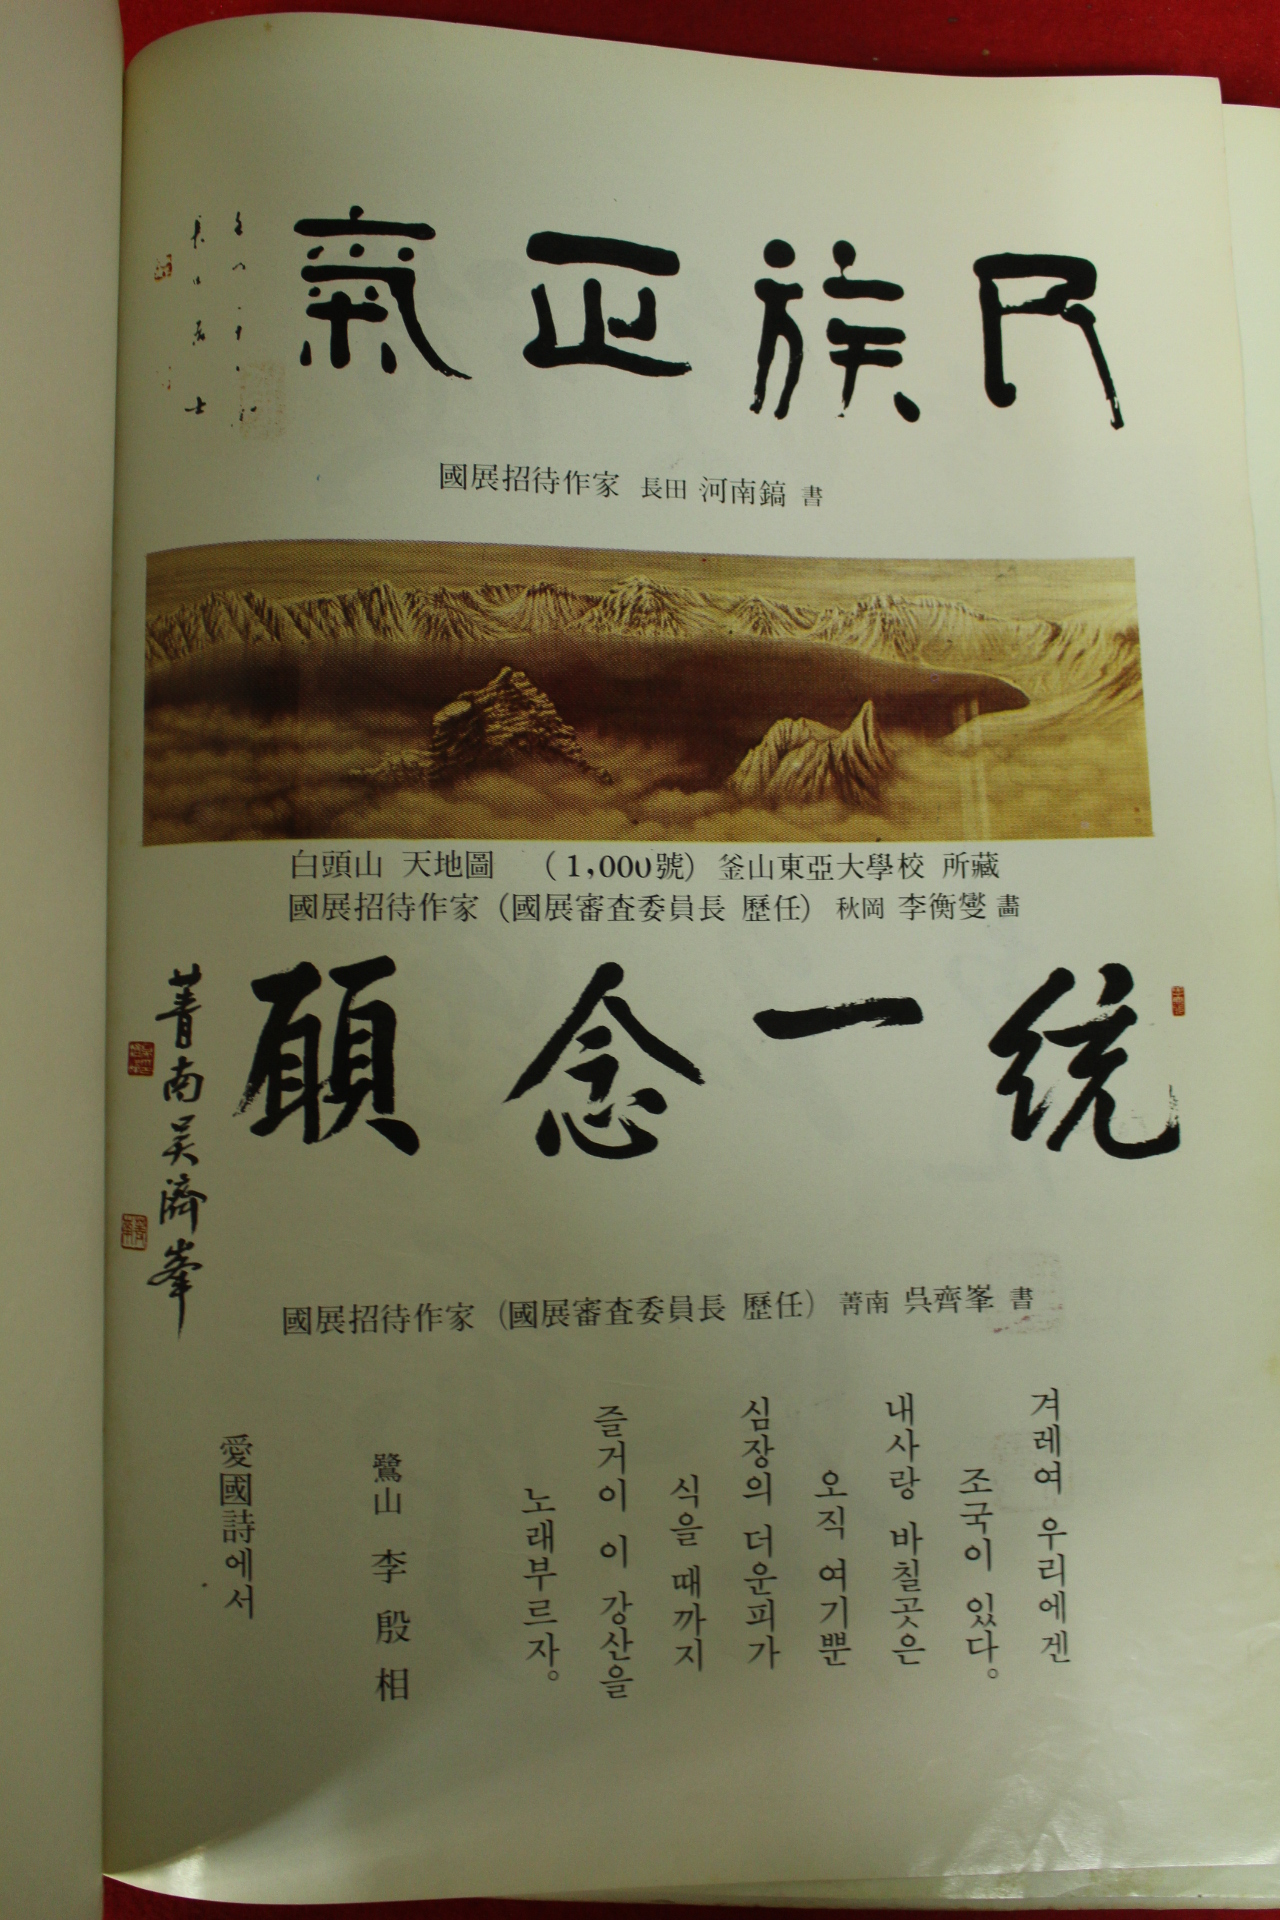 民族正氣
國展招待作家 長田 河南鎬 書
白頭山 天地圖 (1,000號) 釜山東亞大學校 所藏
國展招待作家 (國展審査委員長 歷任) 秋岡 李衡燮 畵
統一念願
菁南吳濟峯
國展招待作家 (國展審査委員長 歷任) 菁南 吳齊峯 書
겨레여 우리에겐
조국이 있다。
내사랑 바칠곳은
오직 여기뿐
심장의 더운피가
식을 때까지
즐거이 이 강산을
노래부르자。
鷺山 李殷相
愛國詩에서